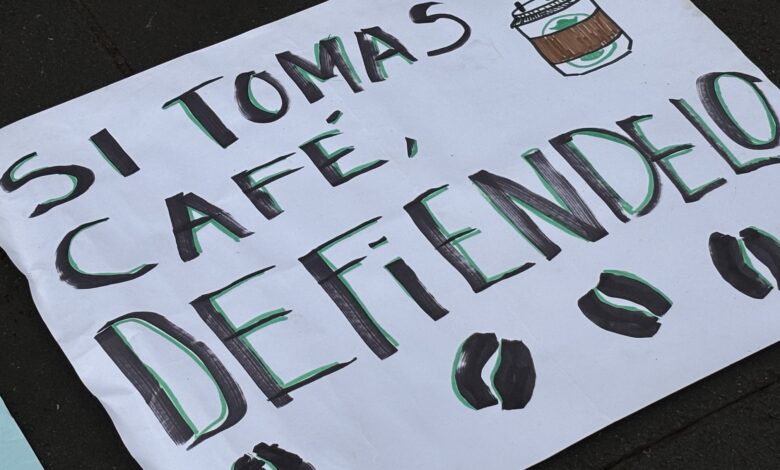 SI TOMAS
CAFÉ,
DEFiENDELO